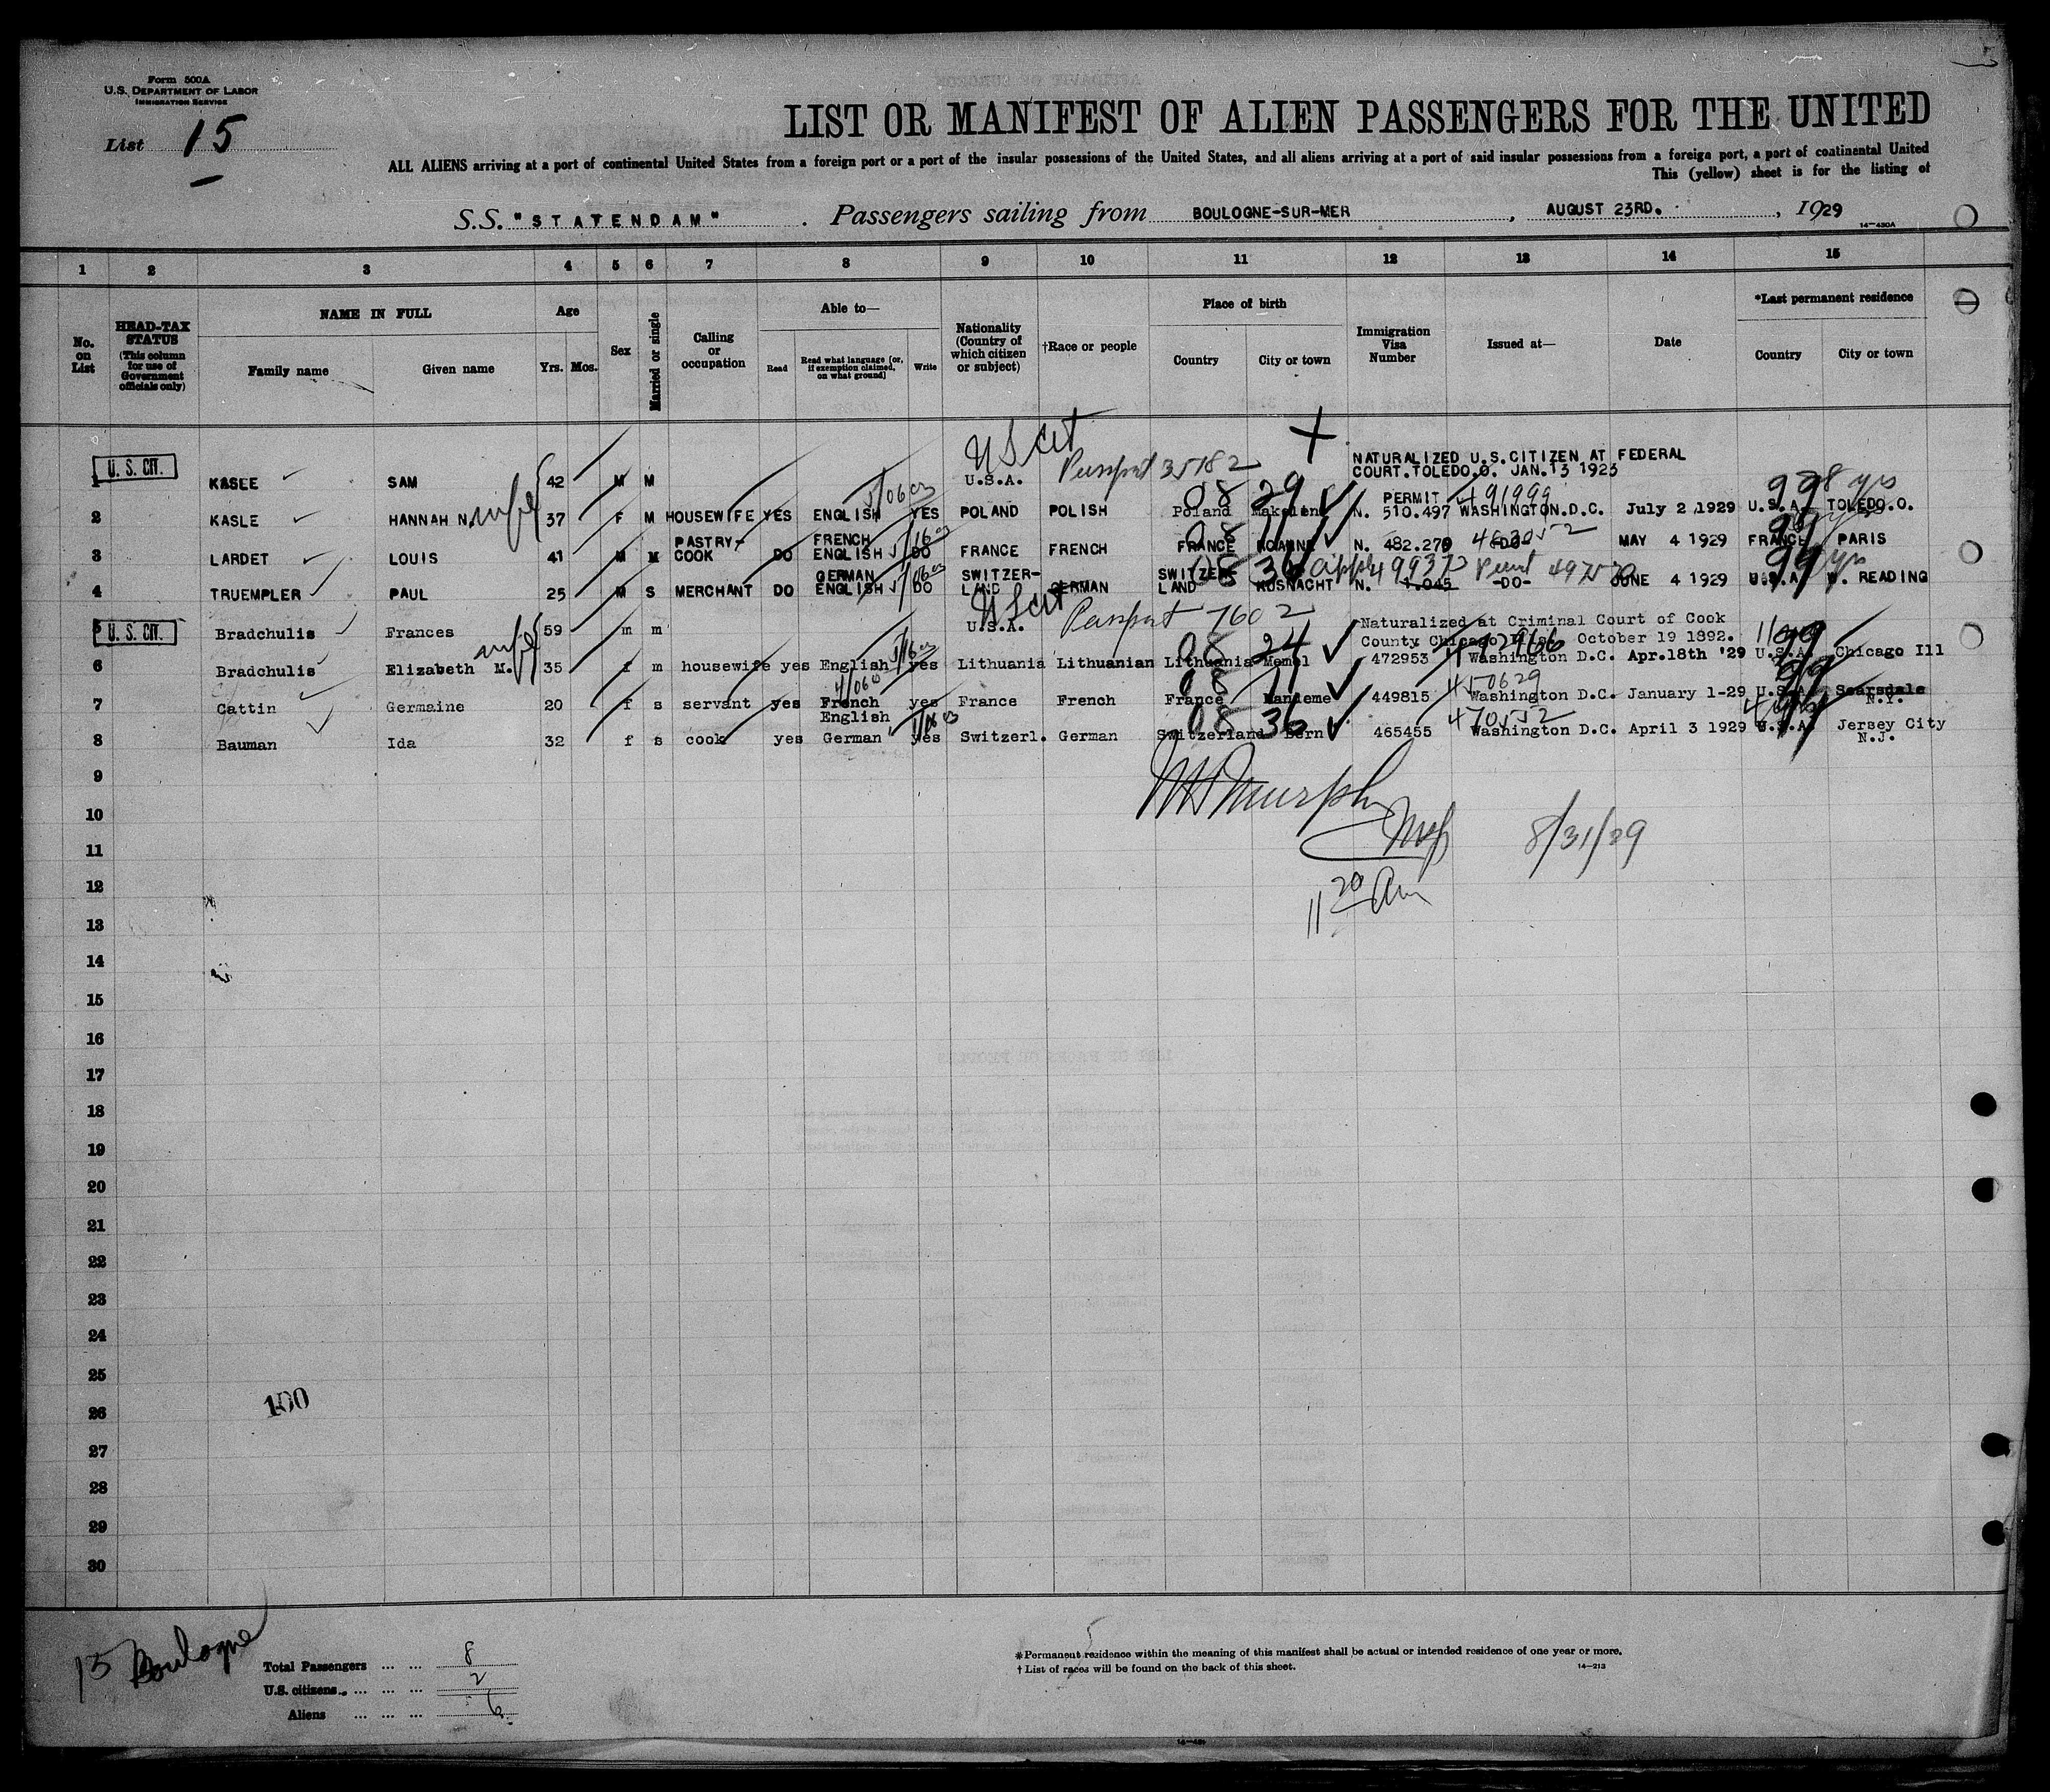 Form 500A
U.S. DEPARTMENT OF LABOR
IMMIGRATION SERVICE
List 15
LIST OR MANIFEST OF ALIEN PASSENGERS FOR THE UNITED
ALL ALIENS arriving at a port of continental United States from a foreign port or a port of the insular possessions of the United States, and all aliens arriving at a port of said insular possessions from a foreign port, a port of continental United
This (yellow) sheet is for the listing of
S.S. "STATENDAM". Passengers sailing from BOULOGNE-SUR-MER, AUGUST 23RD., 1929
14-430A
1 2 3 4 5 6 7 8 9 10 11 12 13 14 15
No. on List
HEAD-TAX STATUS (This column for use of Government officials only)
NAME IN FULL
Family name Given name
Age
Yrs. Mos.
Sex
Married or single
Calling or occupation
Able to—
Read Read what language [or, if exemption claimed, on what ground] Write
Nationality (Country of which citizen or subject)
†Race or people
Place of birth
Country City or town
Immigration Visa Number
Issued at—
Date
*Last permanent residence
Country City or town
US cit Passport 35182
NATURALIZED U.S.CITIZEN AT FEDERAL
1 U. S. CIT. KASLE SAM 42 M M U.S.A. COURT.TOLEDO.O. JAN.13 1923 8 yrs
PERMIT 491999
2 KASLE HANNAH N. wife 37 F M HOUSEWIFE YES ENGLISH YES POLAND POLISH Poland 08 29 N. 510.497 WASHINGTON.D.C. July 2 1929 U.S.A. 99 TOLEDO.O.
3 LARDET LOUIS 41 M M PASTRY-COOK DO FRENCH ENGLISH DO FRANCE FRENCH FRANCE ROANNE 08 11 N. 482.270 -DO- MAY 4 1929 FRANCE 99 PARIS
4 TRUEMPLER PAUL 25 M S MERCHANT DO GERMAN ENGLISH DO SWITZER-LAND GERMAN SWITZER-LAND KUSNACHT 08 36 N. 1.045 -DO- JUNE 4 1929 U.S.A. 99 W. READING
US cit Passport 7602
5 U. S. CIT. Bradchulis Frances 59 m m U.S.A. Naturalized at Criminal Court of Cook
County Chicago Ills. October 19 1892.
6 Bradchulis Elizabeth M. wife 35 f m housewife yes English yes Lithuania Lithuanian Lithuania Memel 08 24 472953 492966 Washington D.C. Apr.18th '29 U.S.A. 99 Chicago Ill
7 Cattin Germaine 20 f s servant yes French English yes France French France 08 11 449815 450629 Washington D.C. January 1-29 U.S.A. 99 Scarsdale N.Y.
8 Bauman Ida 32 f s cook yes German yes Switzerl. German Switzerland Bern 08 36 465455 470552 Washington D.C. April 3 1929 U.S.A. 99 Jersey City N.J.
9
10
11
8/31/29
12
11 20 Am
13
14
15
16
17
18
19
20
21
22
23
24
25
26
100
27
28
29
30
15 Boulogne
Total Passengers ... ... 8
U.S. citizens ... ... ... 2
Aliens ... ... ... 6
*Permanent residence within the meaning of this manifest shall be actual or intended residence of one year or more.
†List of races will be found on the back of this sheet.
14-213